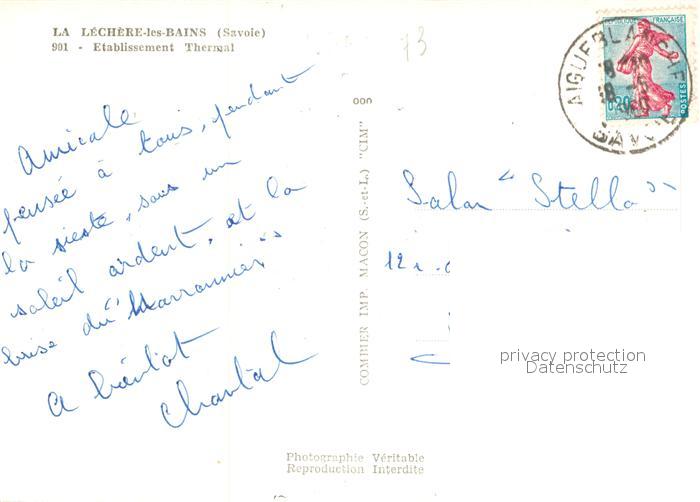 LA LÉCHÈRE-les-BAINS (Savoie)
901 - Etablissement Thermal
73
Amicale
pensée à tous, pendant
la sieste, sous un
soleil ardent, et la
brise du "Marronnier"
A bientôt
Chantal
ooo
COMBIER IMP. MACON (S.-et-L.) "CIM"
REPUBLIQUE FRANÇAISE
0,20
POSTES
AIGUEBLANCHE
SAVOIE
Salon "Stella"
12
privacy protection
Datenschutz
Photographie Véritable
Reproduction Interdite